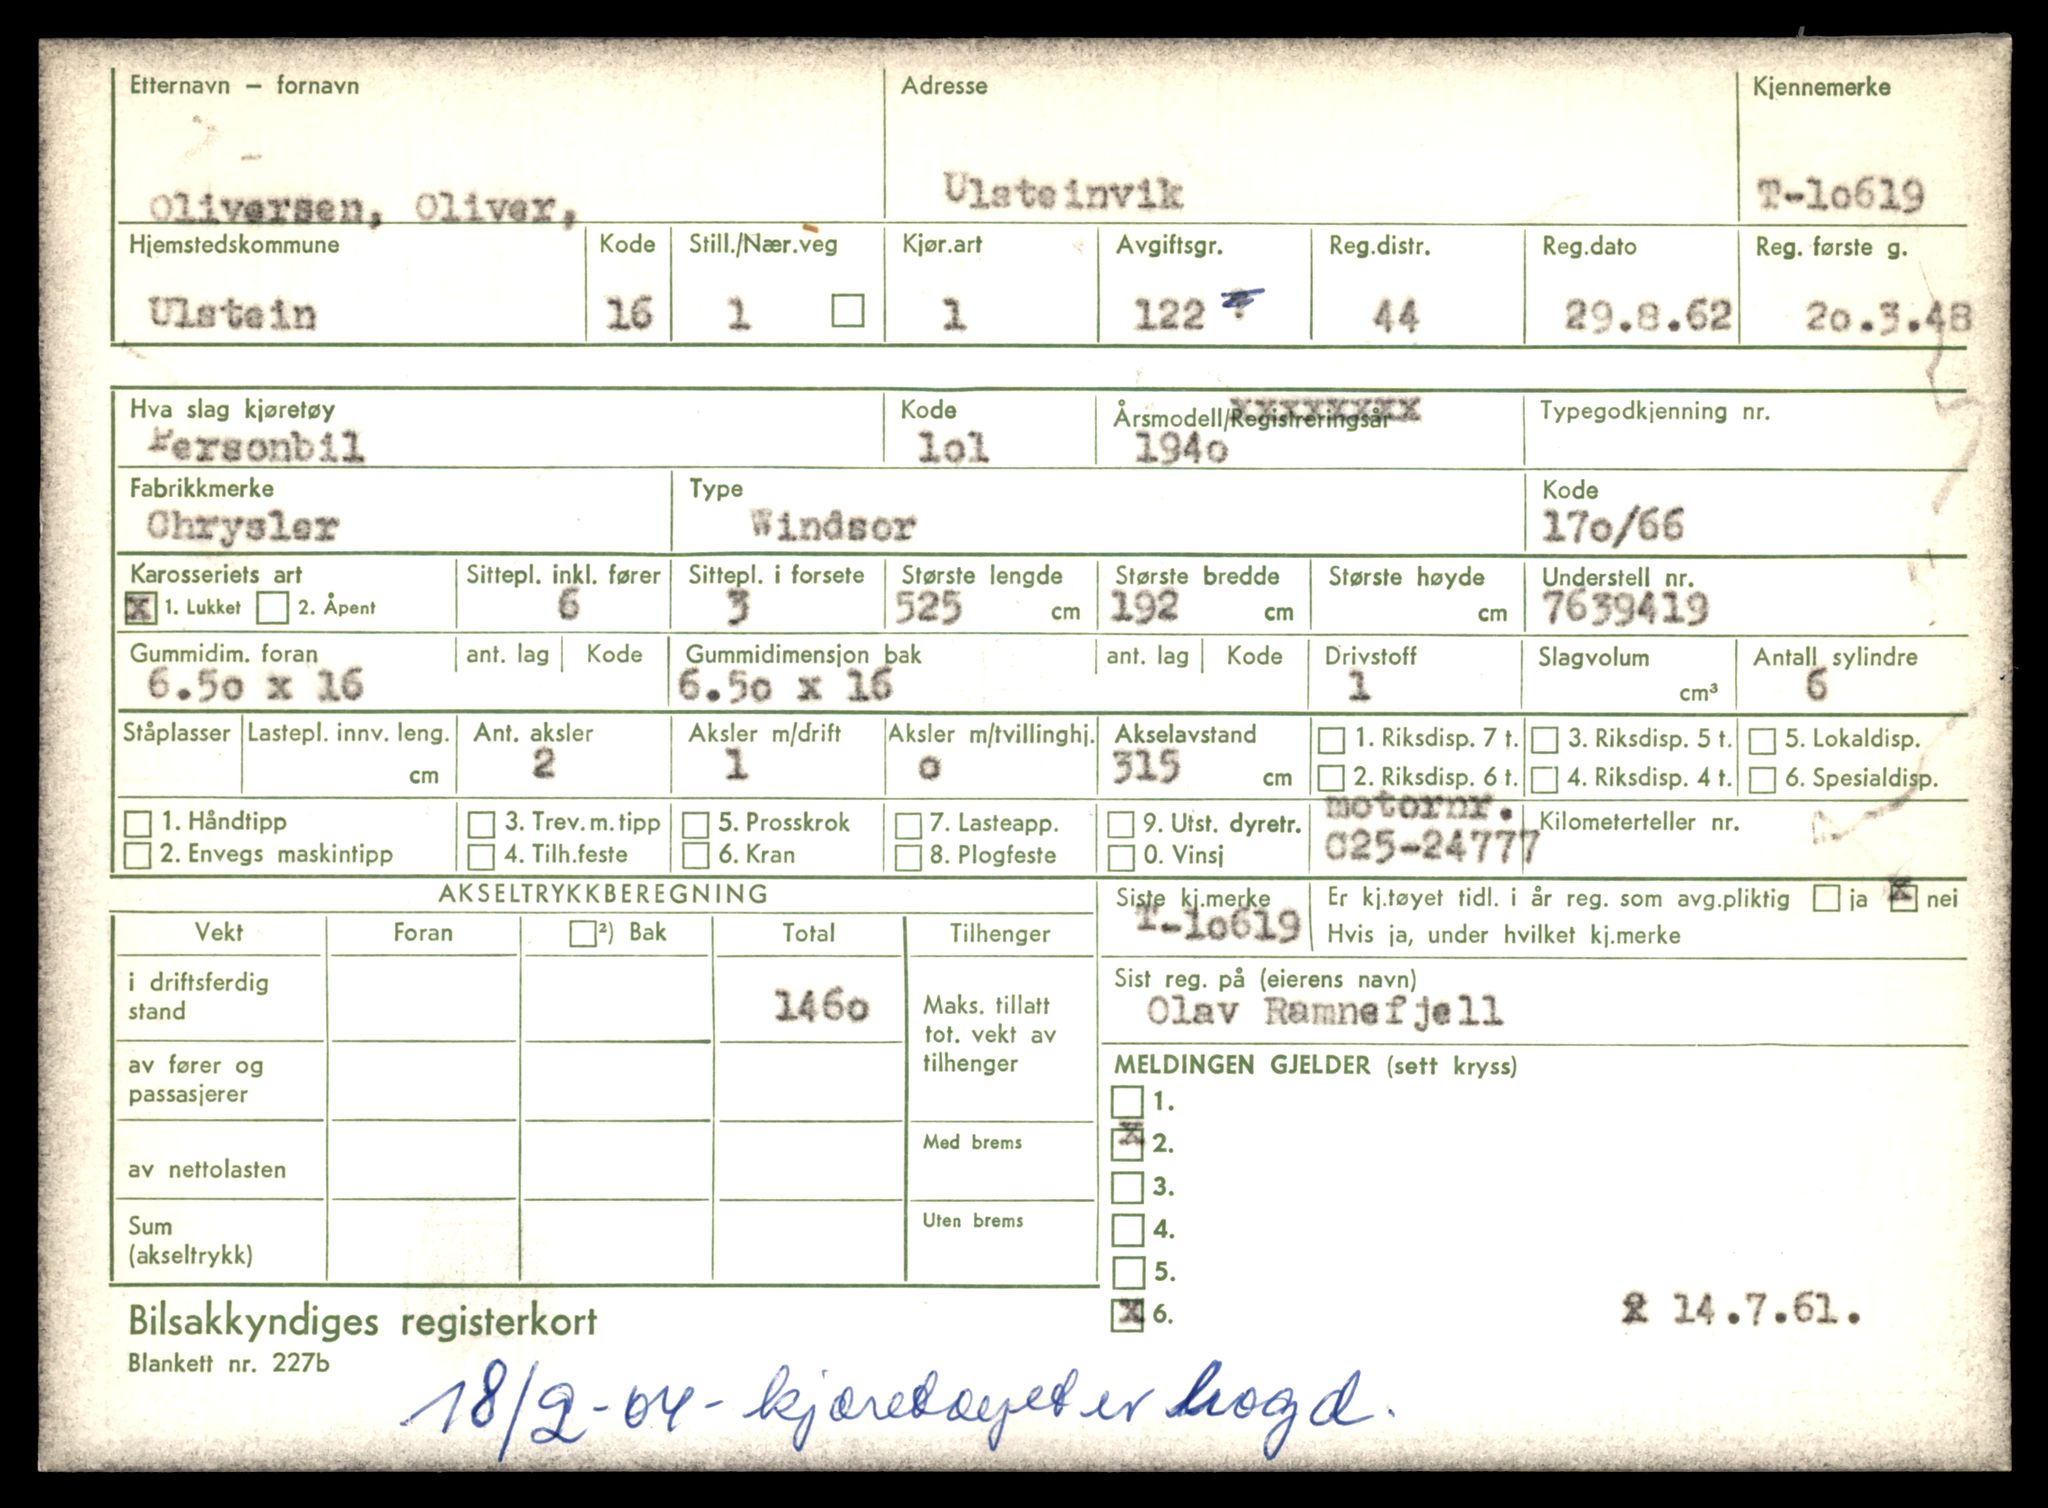 Etternavn – fornavn Adresse Kjennemerke
Oliversen, Oliver, Ulsteinvik T-lo619
Hjemstedskommune Kode Still./Nær.veg Kjør.art Avgiftsgr. Reg.distr. Reg.dato Reg. første g.
Ulstein 16 1 1 122 44 29.8.62 2o.3.48
Hva slag kjøretøy Kode Årsmodell/Registreringsår Typegodkjenning nr.
Personbil lol 194o
Fabrikkmerke Type Kode
Chrysler Windsor 17o/66
Karosseriets art Sittepl. inkl. fører Sittepl. i forsete Største lengde Største bredde Største høyde Understell nr.
x 1. Lukket 2. Åpent 6 3 525 cm 192 cm cm 7639419
Gummidim. foran ant. lag Kode Gummidimensjon bak ant. lag Kode Drivstoff Slagvolum Antall sylindre
6.5o x 16 6.5o x 16 1 cm³ 6
Ståplasser Lastepl. innv. leng. Ant. aksler Aksler m/drift Aksler m/tvillinghj. Akselavstand 1. Riksdisp. 7 t. 3. Riksdisp. 5 t. 5. Lokaldisp.
cm 2 1 o 315 cm 2. Riksdisp. 6 t. 4. Riksdisp. 4 t. 6. Spesialdisp.
1. Håndtipp 3. Trev. m. tipp 5. Prosskrok 7. Lasteapp. 9. Utst. dyretr. motornr. Kilometerteller nr.
2. Envegs maskintipp 4. Tilh.feste 6. Kran 8. Plogfeste 0. Vinsj C25-24777
AKSELTRYKKBEREGNING Siste kj.merke Er kj.tøyet tidl. i år reg. som avg.pliktig ja x nei
Vekt Foran ²) Bak Total Tilhenger T-lo619 Hvis ja, under hvilket kj.merke
i driftsferdig stand 146o Maks. tillatt tot. vekt av tilhenger Sist reg. på (eierens navn)
Olav Ramnefjell
av fører og passasjerer MELDINGEN GJELDER (sett kryss)
1.
Med brems x 2.
av nettolasten 3.
Sum (akseltrykk) Uten brems 4.
5.
Bilsakkyndiges registerkort x 6. 14.7.61.
Blankett nr. 227b
18/2-04- kjøretøyet er hogd.